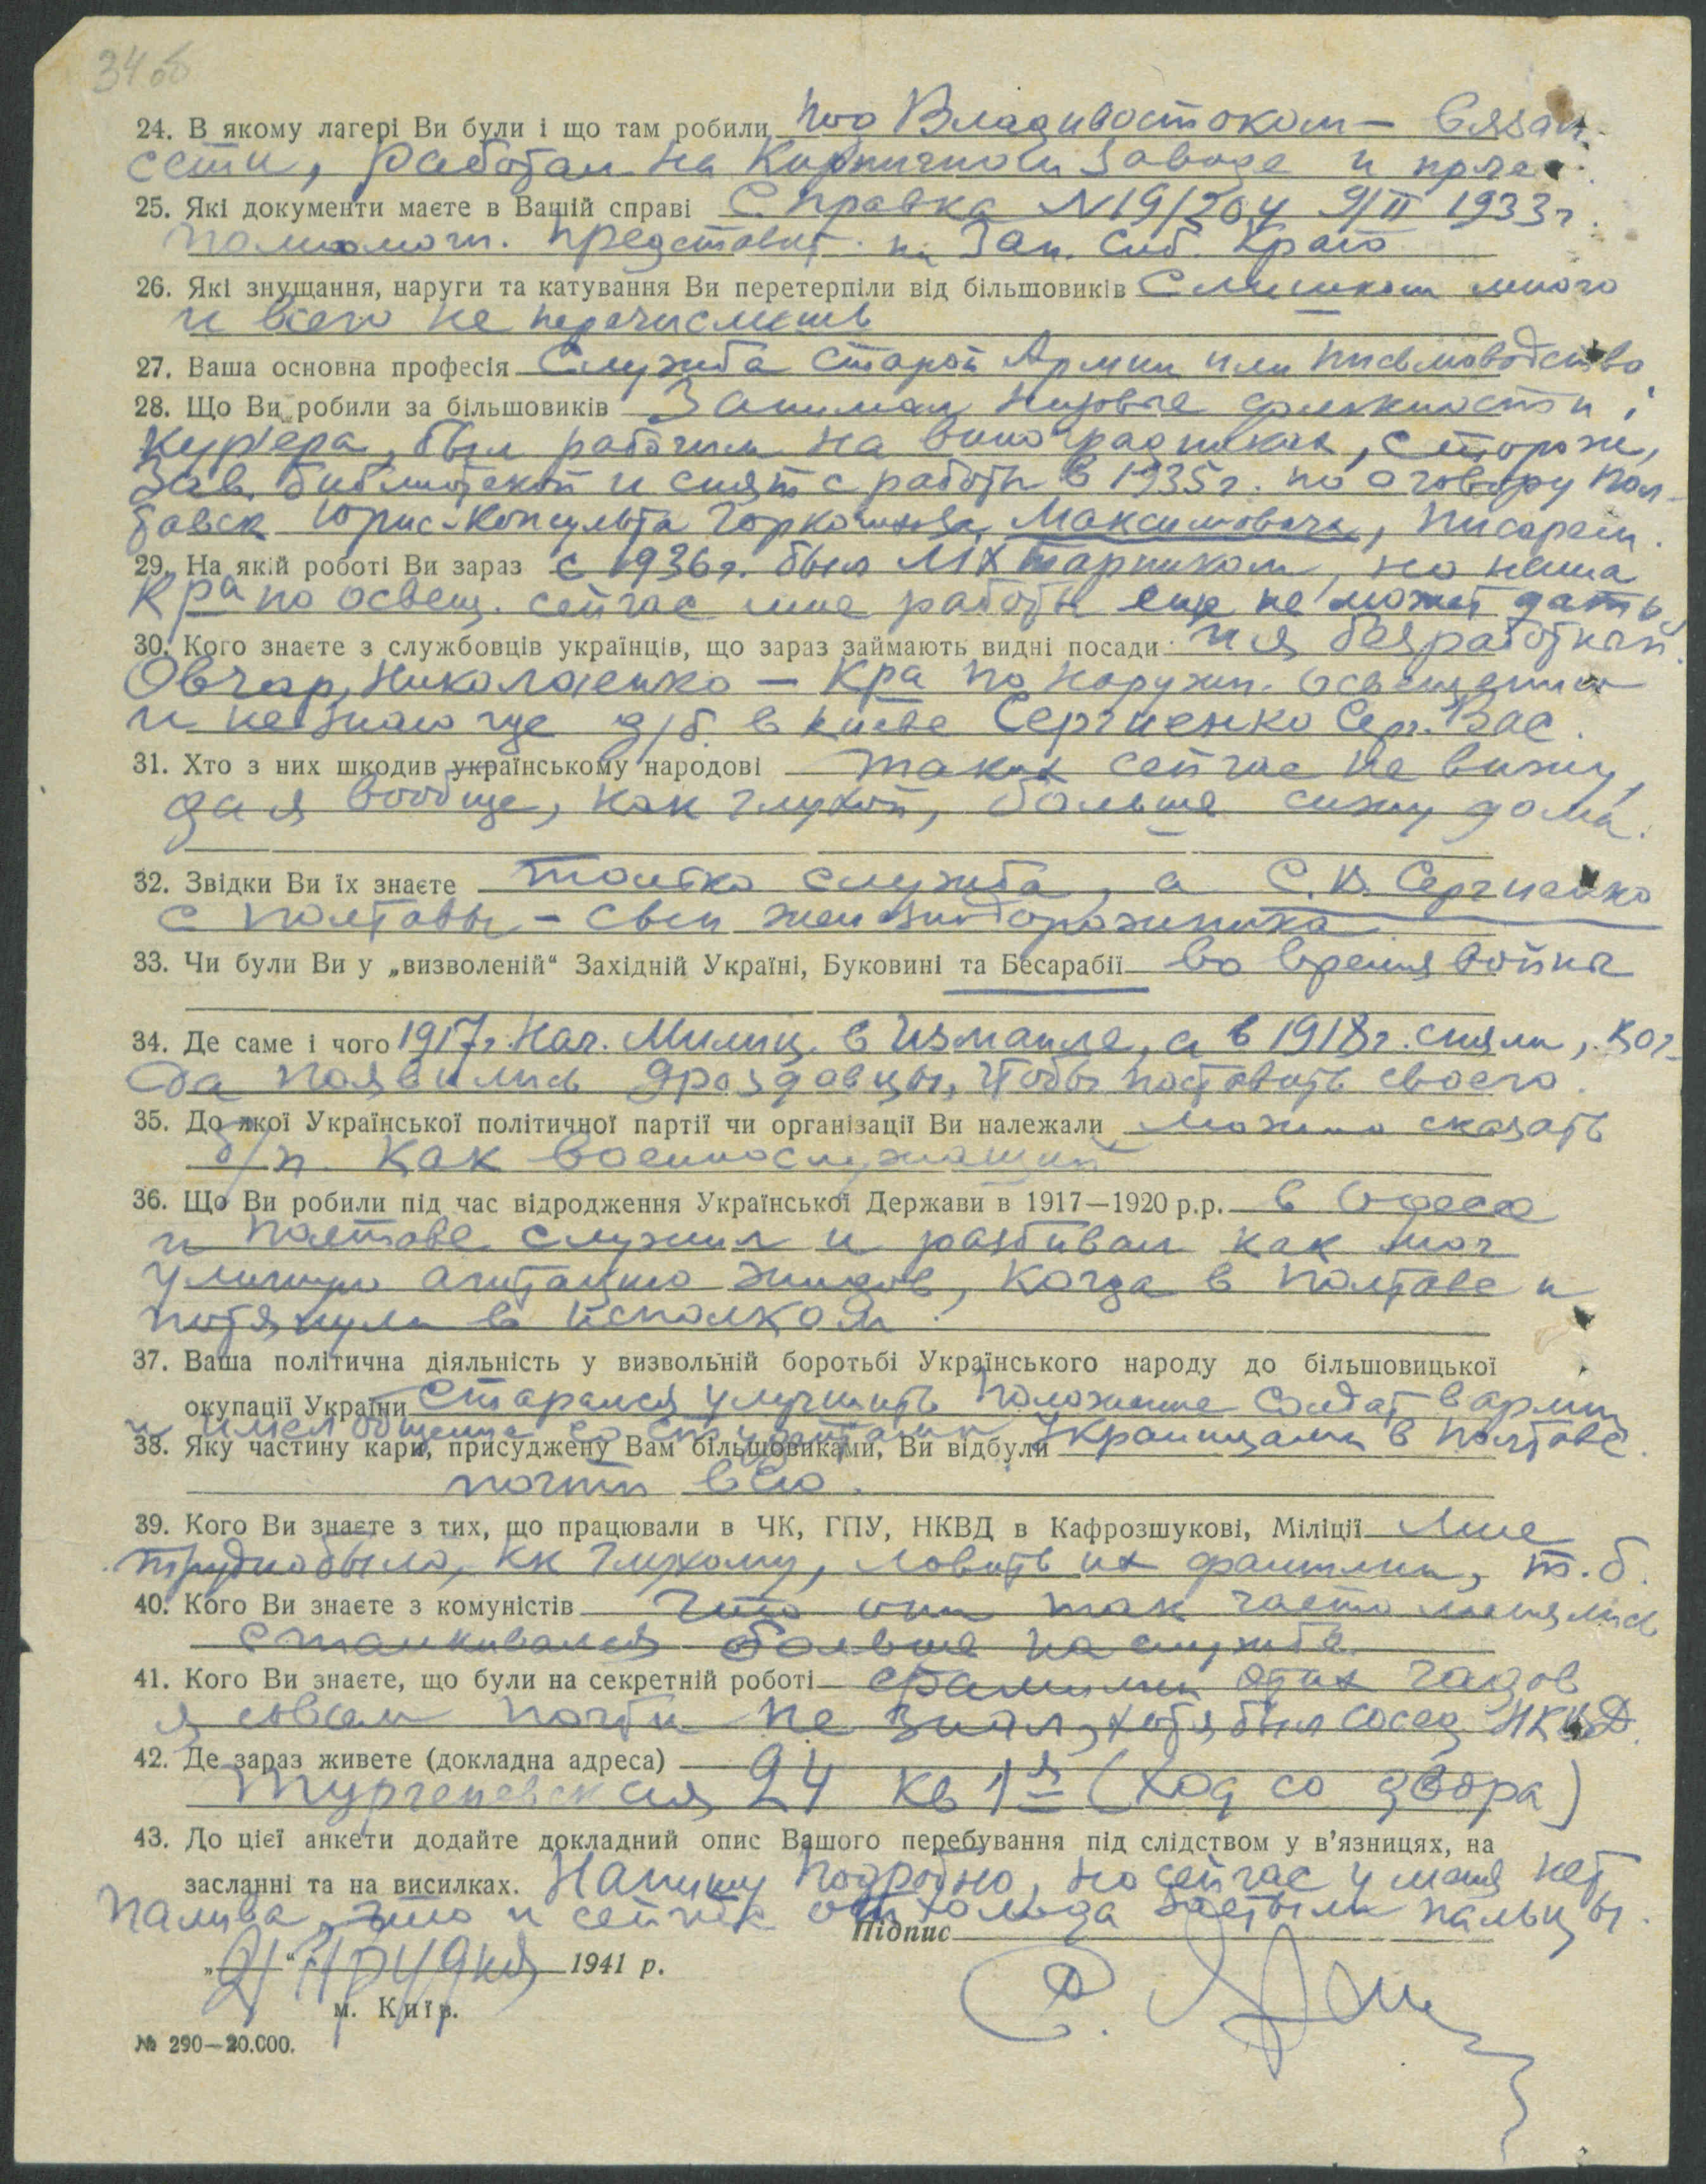 34 об
24. В якому лагері Ви були і що там робили под Владивостоком – вязал
сети, работал на Кирпичном заводе и проч.
25. Які документи маєте в Вашій справі Справка N19/204 9/II 1933 г.
полномоч. представит. по Зап. Сиб. Краю
26. Які знущання, наруги та катування Ви перетерпіли від більшовиків Слишком много
и всего не перечислишь
27. Ваша основна професія Служба старой Армии или письмоводство
28. Що Ви робили за більшовиків Занимал низовые должности:
Кур'ера, был рабочим на виноградниках, сторож,
Зав. библиотекой и снят с работы в 1935 г. по оговору Пол-
тавск Юрис-Консульта Максимовича, писарем.
29. На якій роботі Ви зараз с 1936 г. был фонарником, но наша
К-ра по освещ. сейчас мне работы еще не может дать
30. Кого знаєте з службовців українців, що зараз займають видні посади и я безработный.
Овчар, Николаенко – К-ра по наружн. освещению
и не знаю где д/б. в Киеве Сергиенко Сер. Вас.
31. Хто з них шкодив українському народові таких сейчас не вижу,
да я вообще, как глухой, больше сижу дома.
32. Звідки Ви їх знаєте только служба, а С. В. Сергиенко
с Полтавы – сын железнодорожника
33. Чи були Ви у „визволеній“ Західній Україні, Буковині та Бесарабії во время войны
34. Де саме і чого 1917 г. Нач. Милиц. в Измаиле, а в 1918 г. сняли, ког-
да появились дроздовцы, чтобы поставить своего.
35. До якої Української політичної партії чи організації Ви належали можно сказать
б/п. как военнослужащий
36. Що Ви робили під час відродження Української Держави в 1917—1920 р.р. в Одессе
и Полтаве служил и разбивал как мог
уличную агитацию жидов, когда в Полтаве и
потянули в исполком.
37. Ваша політична діяльність у визвольній боротьбі Українського народу до більшовицької
окупації України Старался улучшить положение солдат в армии
и имел общение со студентами Украинцами в Полтаве.
38. Яку частину кари, присуджену Вам більшовиками, Ви відбули
почти всю.
39. Кого Ви знаєте з тих, що працювали в ЧК, ГПУ, НКВД в Кафрозшукові, Міліції Мне
трудно было, кк глухому, ловить их фамилии, т. б.
40. Кого Ви знаєте з комуністів что они так часто менялись
сталкивался больше на службе
41. Кого Ви знаєте, що були на секретній роботі фамилии этих гадов
я совсем почти не знал, хотя был сосед НКВД.
42. Де зараз живете (докладна адреса)
Тургеневская 24 кв 1я (ход со двора)
43. До цієї анкети додайте докладний опис Вашого перебування під слідством у в’язницях, на
засланні та на висилках. Напишу подробно, но сейчас у меня нет
палива, что и сейчас от холода застыли пальцы.
Підпис
„21“ Грудня 1941 р.
м. Київ.
№ 290—20.000.